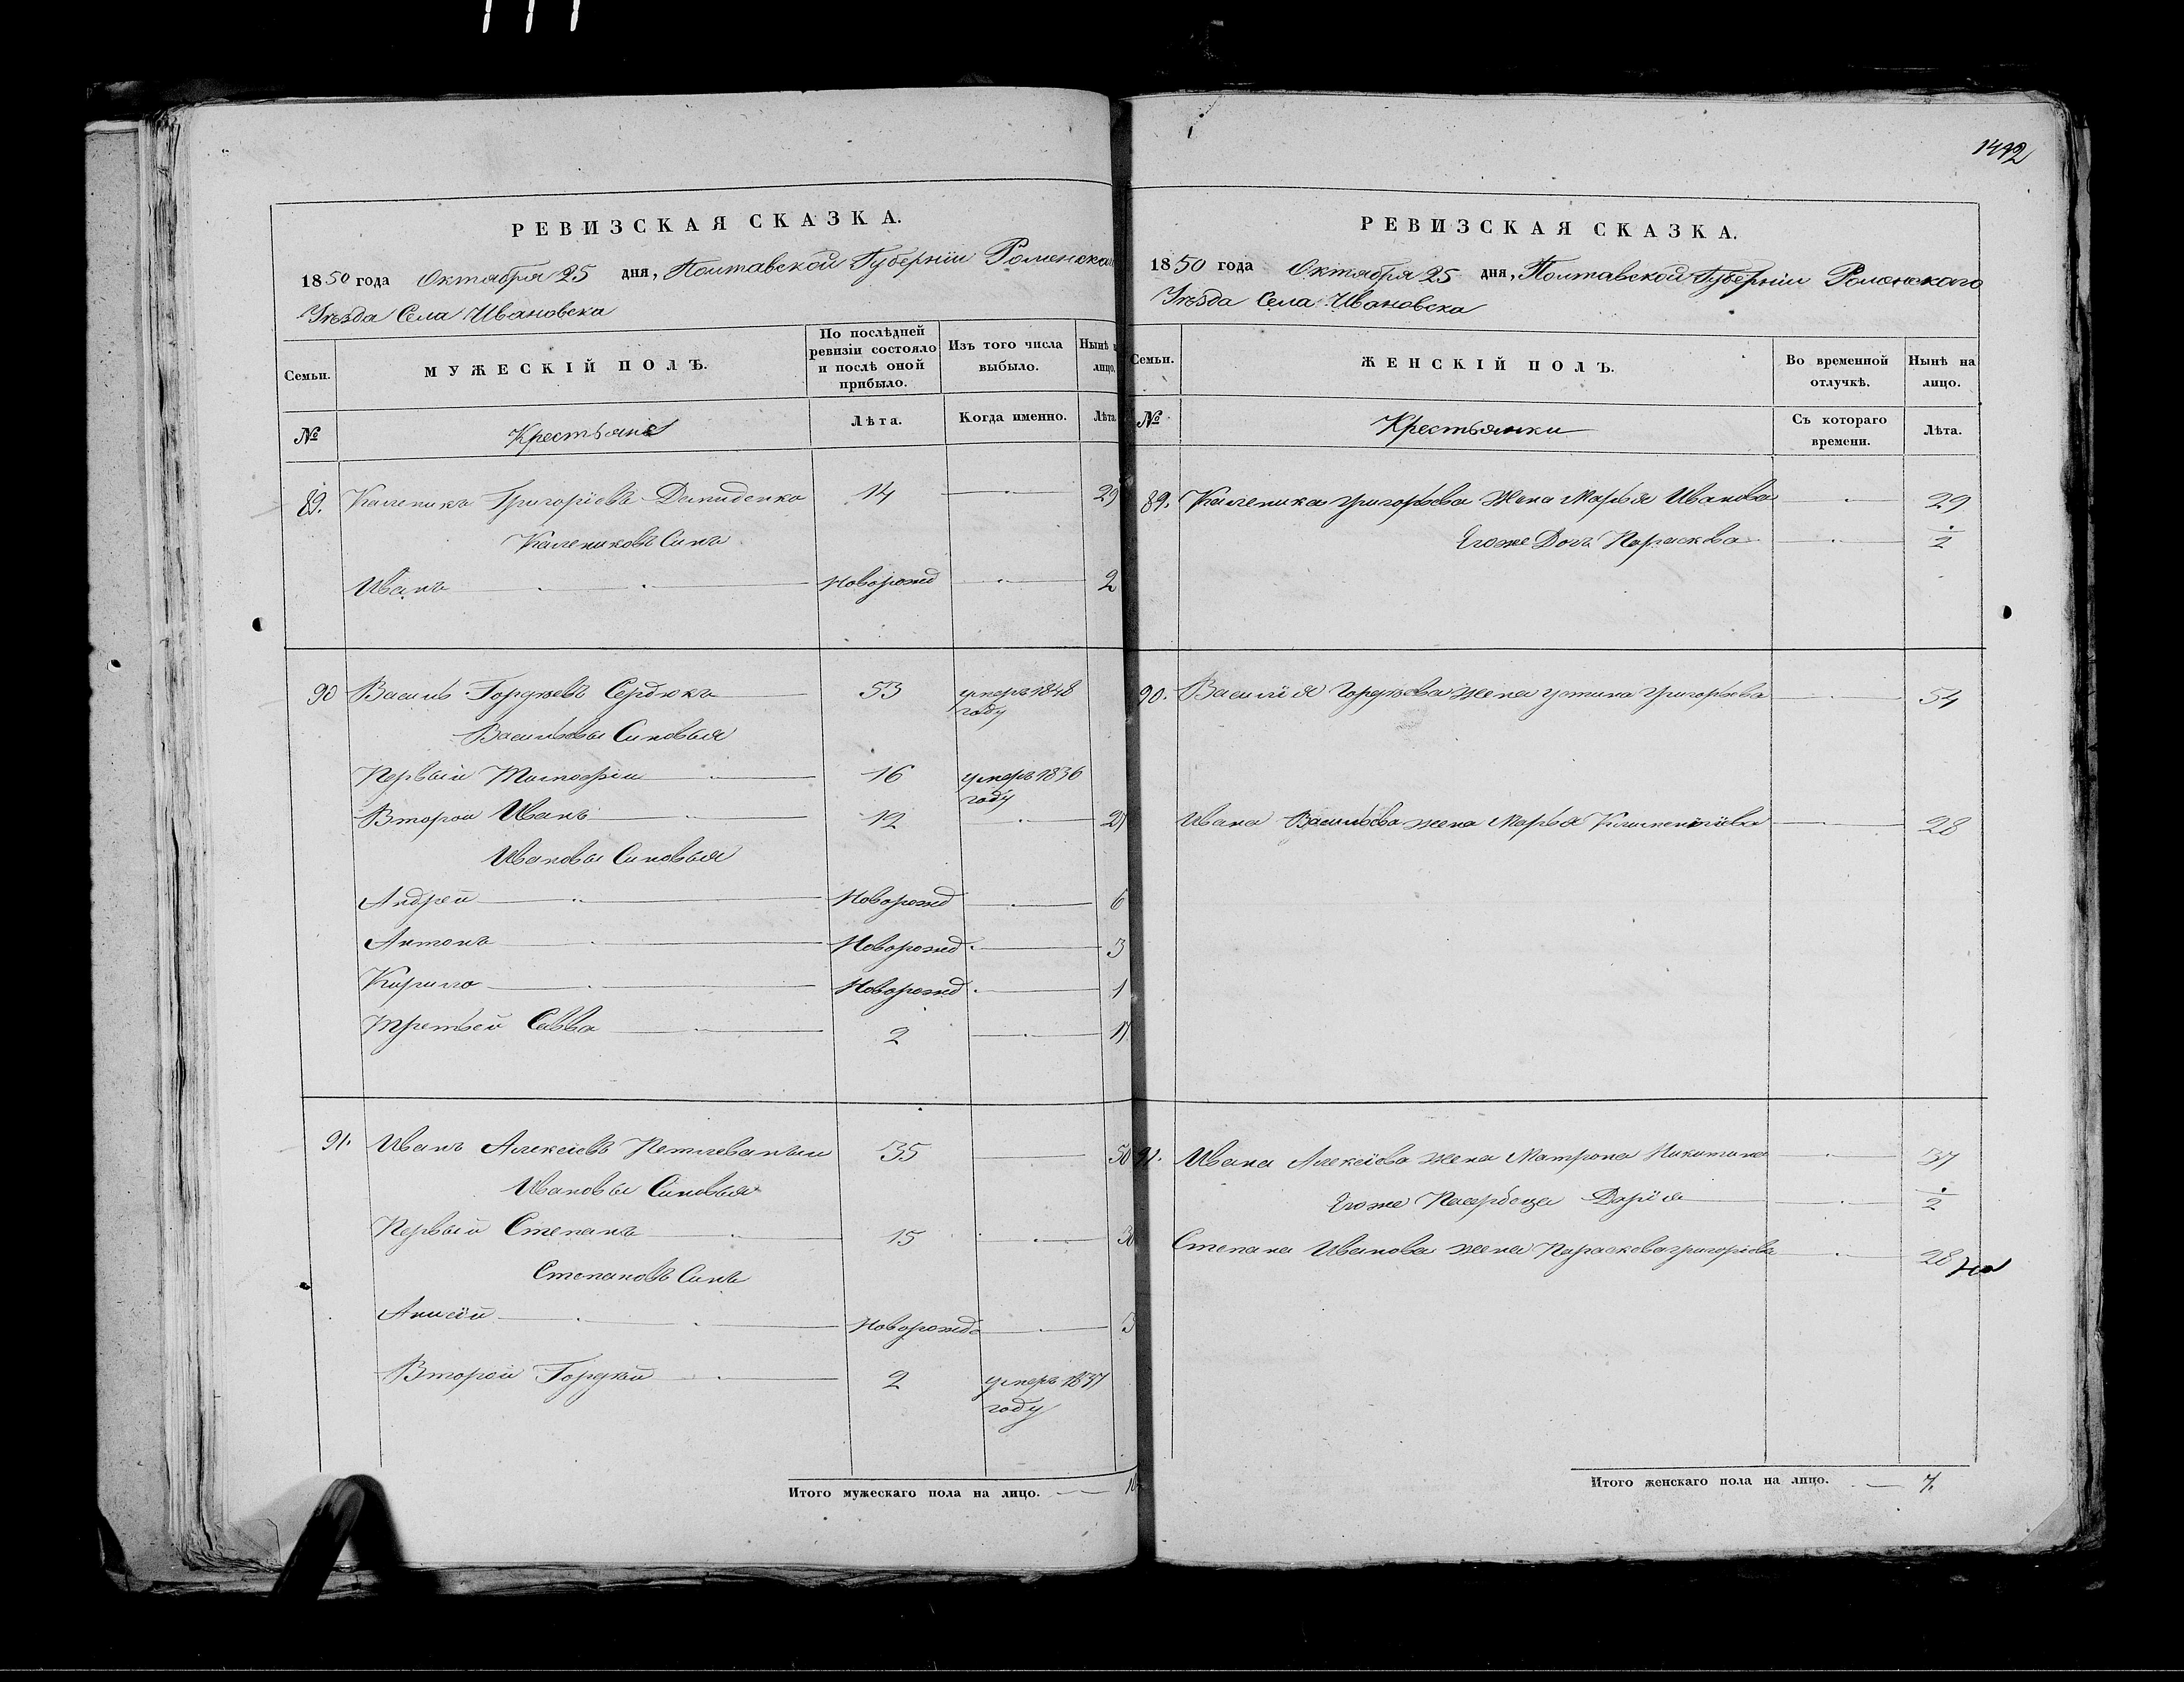 1492
РЕВИЗСКАЯ СКАЗКА.
1850 года Октября 25 дня, Полтавской Губерніи Роменскаго
Уѣзда Села Ивановска
Семьи. МУЖЕСКІЙ ПОЛЪ. По послѣдней ревизіи состояло и послѣ оной прибыло. Изъ того числа выбыло. Нынѣ на лицо.
№ Крестьяне Лѣта. Когда именно. Лѣта.
89. Каленикъ Григоріевъ Демиденко 14 29
Калениковъ Синъ
Иванъ Новорожд 2
90 Василь Гордѣевъ Сердюкъ 53 умеръ 1848 году
Васильевы Синовья
Первый Тимофій 16 умеръ 1836 году
Второй Иванъ 12 27
Ивановы Синовья
Андрей Новорожд 6
Антонъ Новорожд 3
Кирило Новорожд 1
Третьей Савва 2 17
91. Иванъ Алексіевъ Петлеваный 35 50
Ивановы Синовья
Первый Степанъ 15 30
Степановъ Синъ
Анисій Новорожд 3
Второй Гордѣй 2 умеръ 1837 году
Итого мужескаго пола на лицо. 10
РЕВИЗСКАЯ СКАЗКА.
1850 года Октября 25 дня, Полтавской Губерніи Роменскаго
Уѣзда Села Ивановска
Семьи. ЖЕНСКІЙ ПОЛЪ. Во временной отлучкѣ. Нынѣ на лицо.
№ Крестьянки Съ котораго времени. Лѣта.
89. Каленика Григорьева жена Марья Иванова 29
Егоже Дочь Парасква 2
90. Василія Гордѣева жена Устина Григорьева 54
Ивана Васильева жена Марья Климентіева 28
91. Ивана Алексіева жена Матрона Никитина 37
Егоже Падчерица Дарія 2
Степана Иванова жена Параскова Григоріева 28
Итого женскаго пола на лицо. 7.